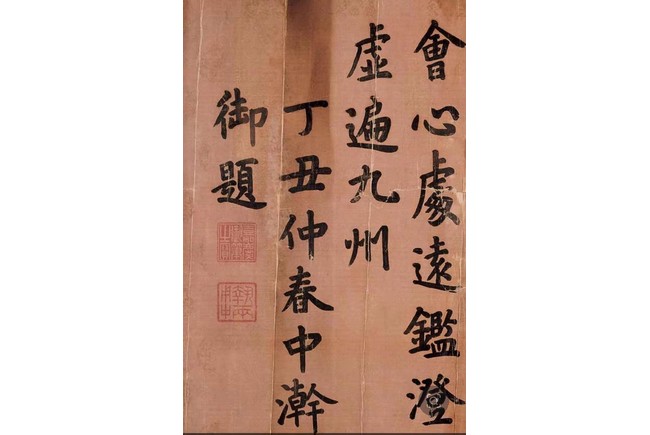 會心處遠鑑澄
虛遍九州
丁丑仲春中澣
御題